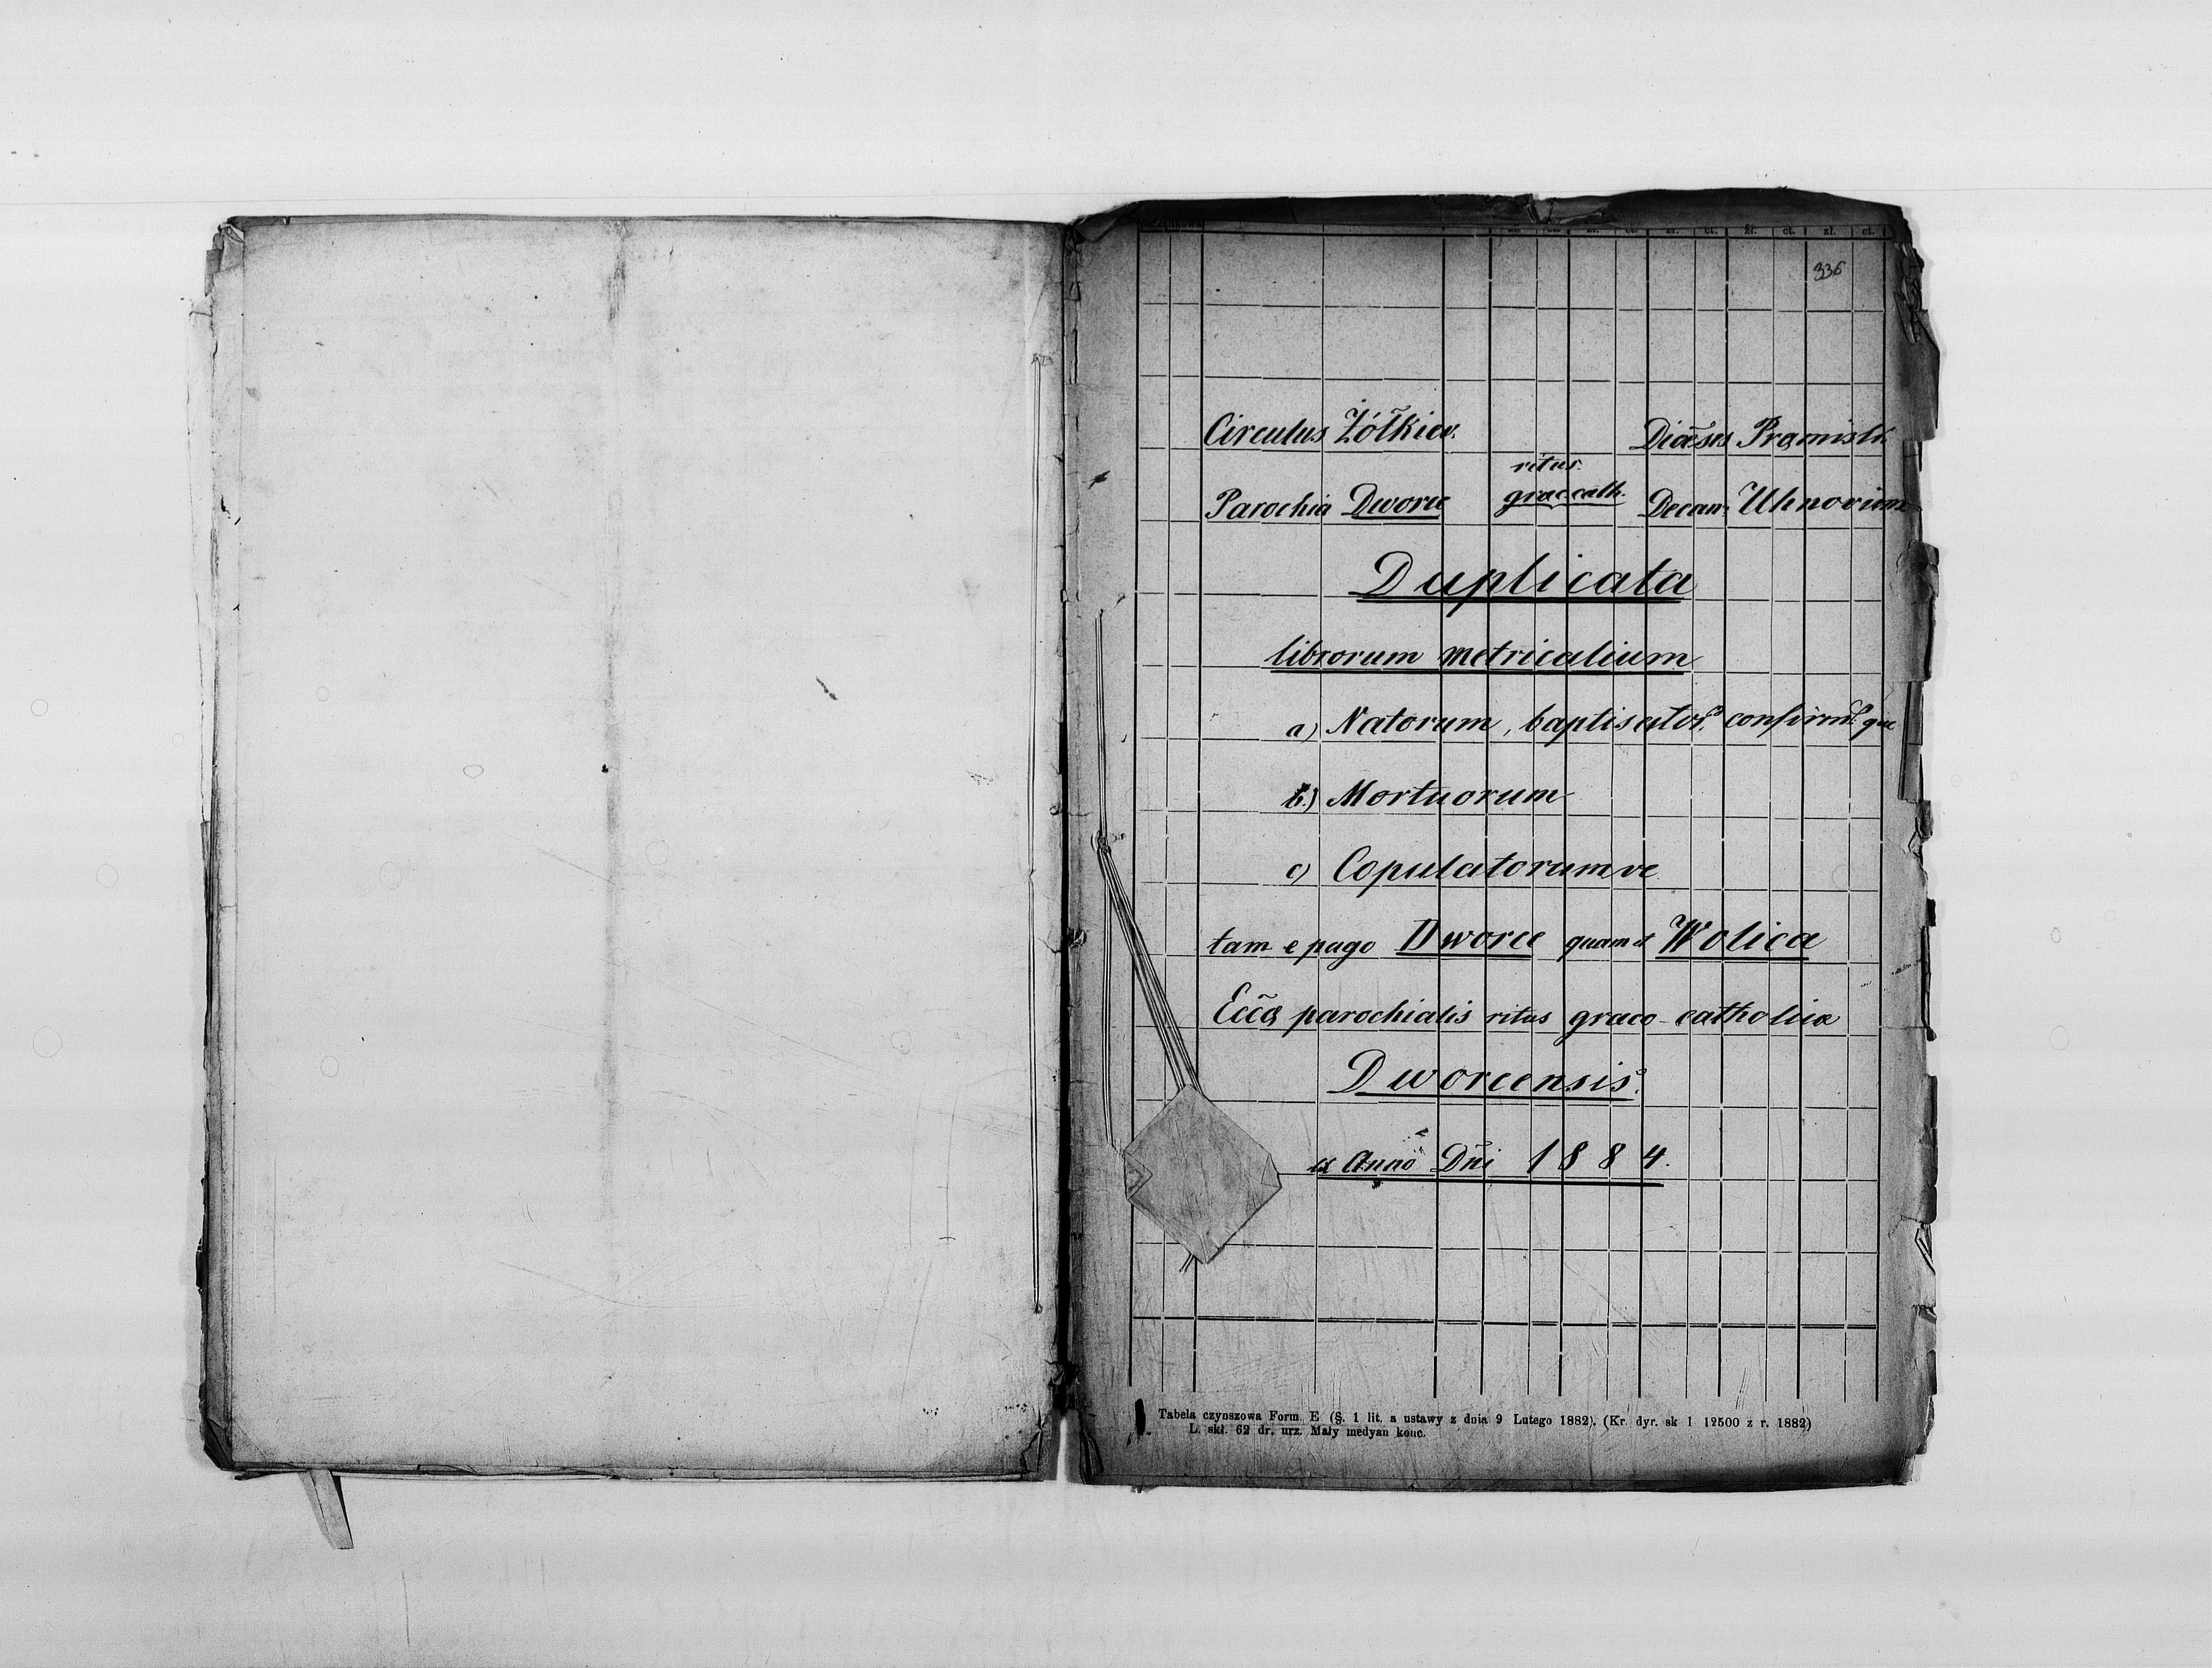 zł. ct. zł. ct. zł. ct. zł. ct. zł. ct.
336
Circulus Żółkiew. Diœ̃ses Præmisli.
ritus
Parochia Dworce græc.cath. Decan: Uhnovien
Duplicata
librorum metricalium
a) Natorum, baptisator. confirm. que
b.) Mortuorum
c) Copulatorumve
tam e pago Dworce quam et Wolica
Eccã parochialis ritus græco-catholicæ
Dworcensis.
ex Anno Dñi 1884.
Tabela czynszowa Form. E (§. 1 lit. a ustawy z dnia 9 Lutego 1882). (Kr. dyr. sk 1 12500 z r. 1882)
L. skł. 62 dr. urz. Mały medyan konc.